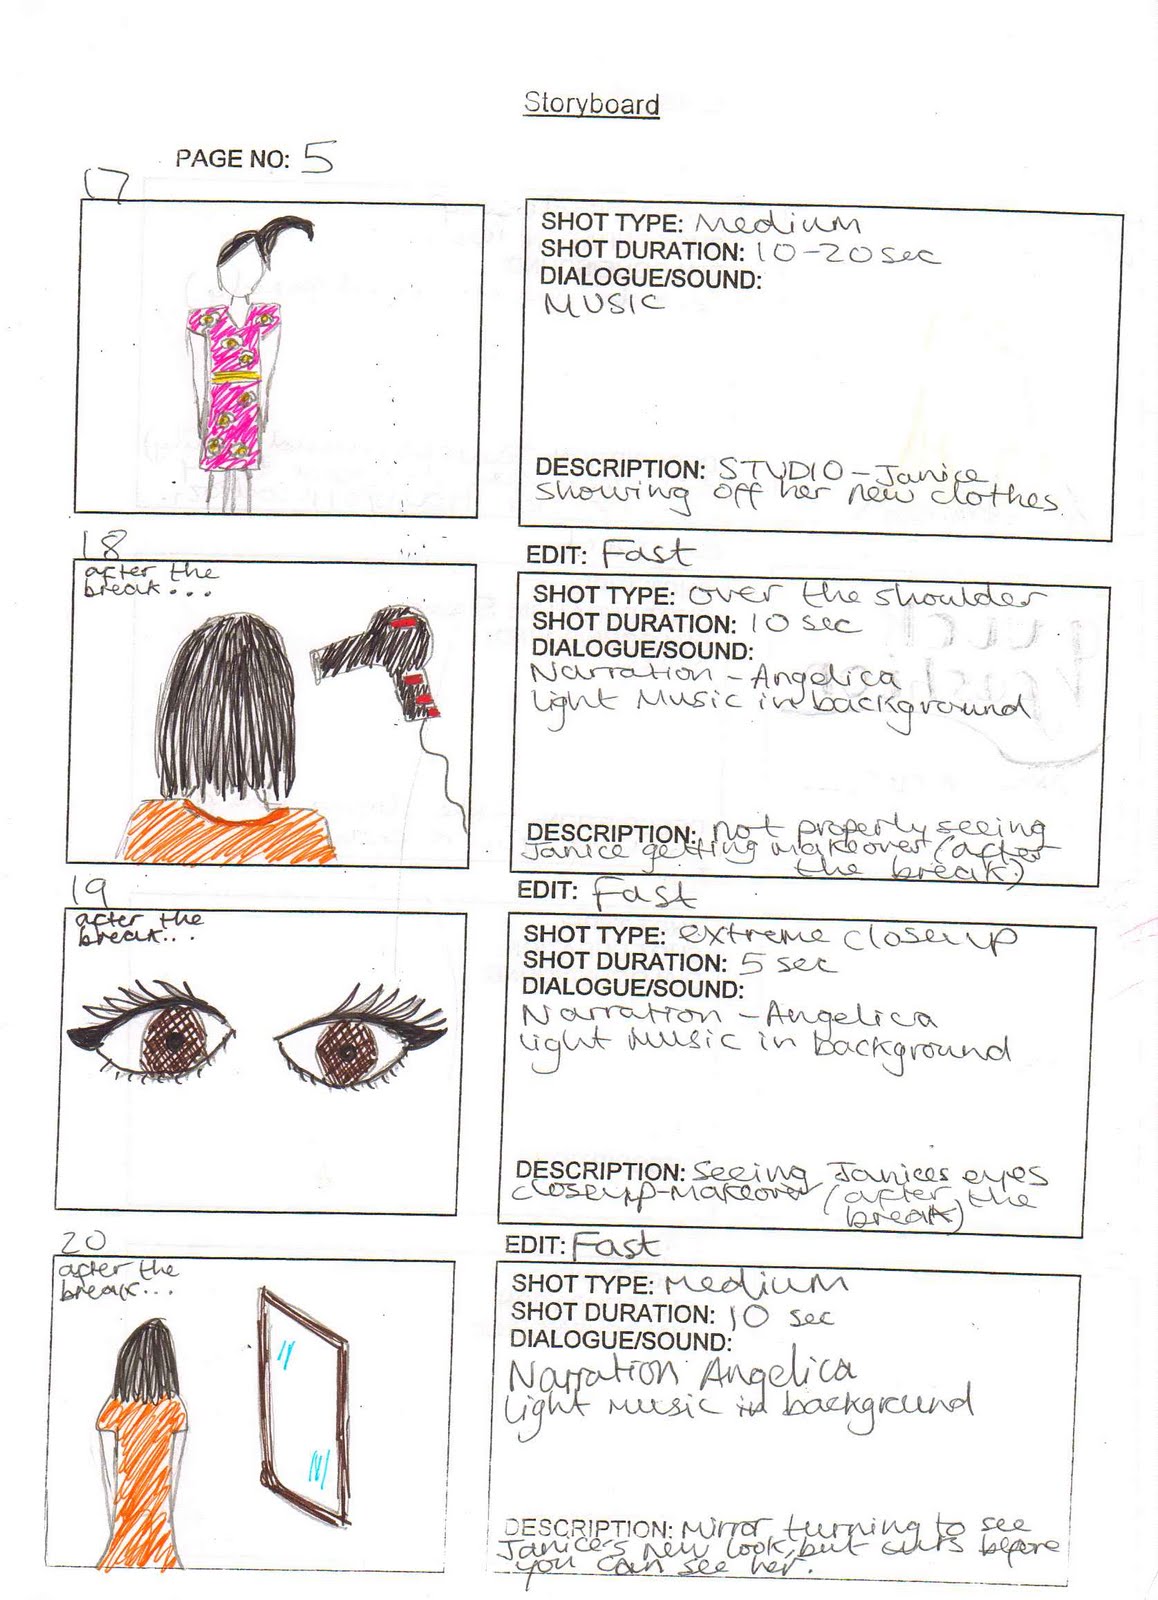 Storyboard
PAGE NO: 5
17
SHOT TYPE: Medium
SHOT DURATION: 10-20sec
DIALOGUE/SOUND:
MUSIC
DESCRIPTION: STUDIO - Janice
showing off her new clothes
EDIT: Fast
18
after the
break...
SHOT TYPE: over the shoulder
SHOT DURATION: 10 sec
DIALOGUE/SOUND:
Narration - Angelica
light Music in background
DESCRIPTION: not properly seeing
Janice getting makeover (after
the break)
EDIT: Fast
19
after the
break...
SHOT TYPE: extreme closeup
SHOT DURATION: 5 sec
DIALOGUE/SOUND:
Narration - Angelica
light Music in background
DESCRIPTION: seeing Janices eyes
closeup-makeover (after the
break)
EDIT: Fast
20
after the
break...
SHOT TYPE: Medium
SHOT DURATION: 10 sec
DIALOGUE/SOUND:
Narration Angelica
light music in background
DESCRIPTION: Mirror turning to see
Janice's new look, but cuts before
you can see her.